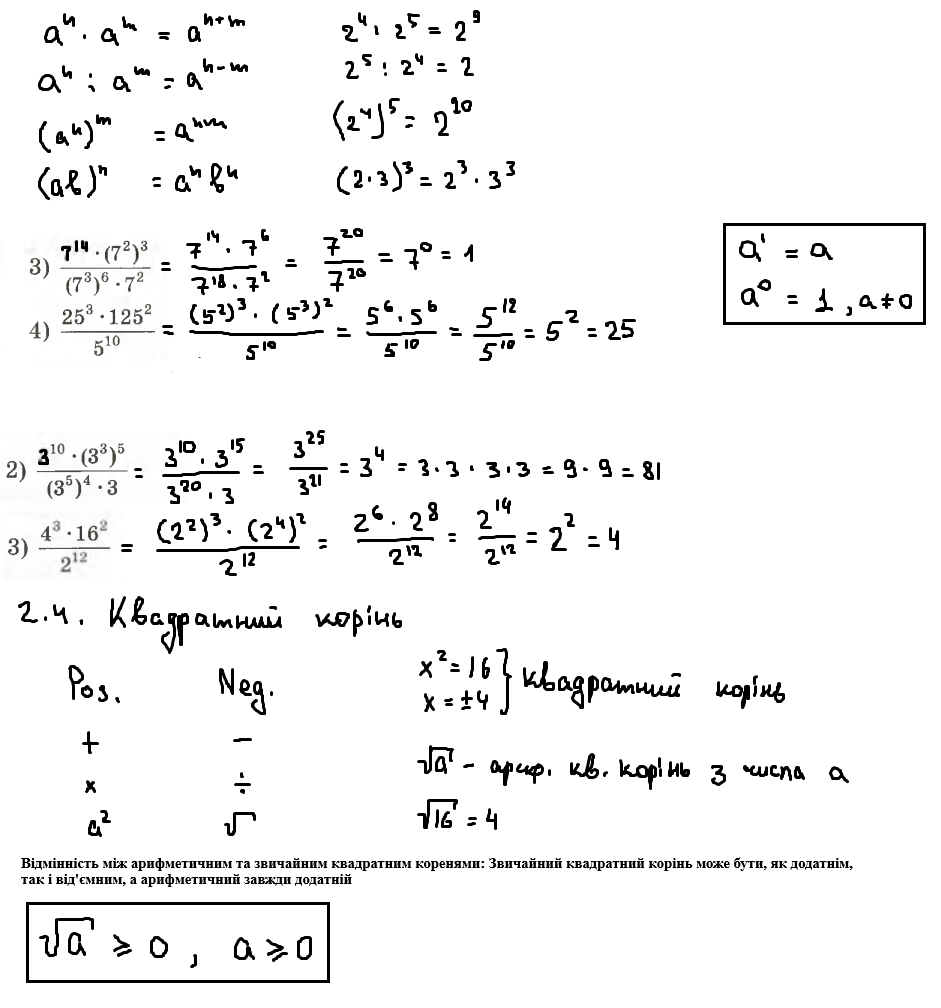 aⁿ · aᵐ = aⁿ⁺ᵐ 2⁴ · 2⁵ = 2⁹
aⁿ : aᵐ = aⁿ⁻ᵐ 2⁵ : 2⁴ = 2
(aⁿ)ᵐ = aⁿᵐ (2⁴)⁵ = 2²⁰
(aв)ⁿ = aⁿвⁿ (2·3)³ = 2³ · 3³
3) 7¹⁴ · (7²)³ / (7³)⁶ · 7² = 7¹⁴ · 7⁶ / 7¹⁸ · 7² = 7²⁰ / 7²⁰ = 7⁰ = 1
a¹ = a
a⁰ = 1, a≠0
4) 25³ · 125² / 5¹⁰ = (5²)³ · (5³)² / 5¹⁰ = 5⁶ · 5⁶ / 5¹⁰ = 5¹² / 5¹⁰ = 5² = 25
2) 3¹⁰ · (3³)⁵ / (3⁵)⁴ · 3 = 3¹⁰ · 3¹⁵ / 3²⁰ · 3 = 3²⁵ / 3²¹ = 3⁴ = 3·3·3·3 = 9·9 = 81
3) 4³ · 16² / 2¹² = (2²)³ · (2⁴)² / 2¹² = 2⁶ · 2⁸ / 2¹² = 2¹⁴ / 2¹² = 2² = 4
2.4. Квадратний корінь
Pos. Neg.
+ −
× ÷
a² √
x² = 16
x = ±4
} квадратний корінь
√a - ариф. кв. корінь з числа a
√16 = 4
Відмінність між арифметичним та звичайним квадратним коренями: Звичайний квадратний корінь може бути, як додатнім,
так і від'ємним, а арифметичний завжди додатній
√a ≥ 0, a ≥ 0